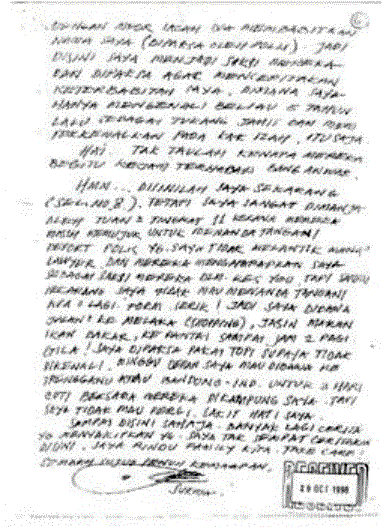 DENGAN UCAPAN IA MEMBABITKAN
NAMA SAYA (DIPAKSA OLEH POLIS). JADI
DISINI SAYA MENJADI SAKSI MEREKA
DAN DIPAKSA AGAR MENCERITAKAN
KETERBABITAN SAYA, DIMANA SAYA
HANYA MENGENALI BELIAU 5 TAHUN
LALU SEBAGAI TUKANG JAHIT DAN
PERKENALKAN PADA KAK IZAH, ITU SAJA.
HAI TAK TAULAH KENAPA MEREKA
BEGITU KEJAM TERHADAP BANG ANWAR.
HMN... DISINILAH SAYA SEKARANG
(SEL NO. 8), TETAPI SAYA SANGAT DIMANJA
OLEH TUAN2 TINGKAT 11 KERANA MEREKA
MASIH MEMUJUK UNTUK MENANDATANGANI
REPORT POLIS YG. SAYA TIDAK MELANTIK
LAWYER DAN MEREKA MENGHARAPKAN SAYA
SEBAGAI SAKSI MEREKA DLM. KES TAPI
SEKARANG SAYA TIDAK MAU MENANDA TANGANI
APA2 LAGI. FORM SERIK! JADI SAYA DIBAWA
JALAN2 KE MELAKA (SHOPPING), JASIN MAKAN
IKAN BAKAR, KE PANTAI SAMPAI JAM 2 PAGI
GILA! SAYA DIPAKSA PAKAI TOPI SUPAYA TIDAK
DIKENALI. MINGGU DEPAN SAYA MAU DIBAWA KE
TRENGGANU ATAU BANDUNG-IND. UNTUK HARI
CUTI BERSAMA MEREKA DIKAMPUNG SAYA. TAPI
SAYA TIDAK MAU PERGI. SAKIT HATI SAYA.
SAMPAI DISINI SAHAJA. BANYAK LAGI CERITA
YG MENYAKITKAN YG. SAYA TAK SEMPAT CERITAKAN
DISINI. SAYA RINDU FAMILY KITA. TAKE CARE!
SEMBAH SUJUD PENUH KEMAAFAN.
SUKMA.
RECEIVED
29 OCT 1998